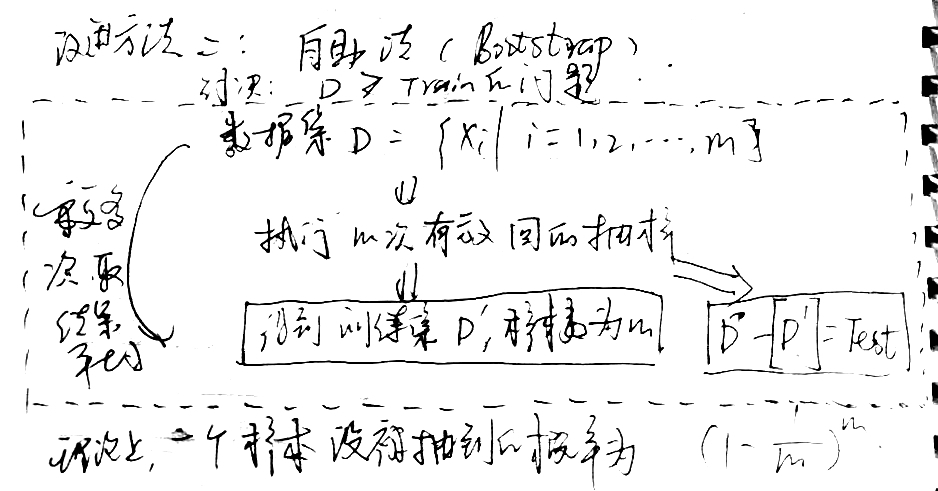 改进方法二：自助法（Bootstrap）
讨论：D≥Train的问题
数据集D = {xi | i=1,2,…,m}
⇓
执行m次有放回的抽样
⇓
得到训练集D'，样本数为m
D - D' = Test
多
次取
结果
平均
理论上，一个样本没被抽到的概率为 (1-1/m)^m